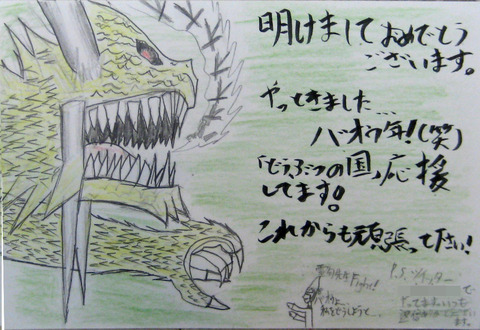 明けましておめでとう
ございます。
やってきました…
バオウ年!(笑)
「どうぶつの国」応援
してます。
これからも頑張って下さい!
Fight!
P.S. ツイッター
で
やってます。いつも
ます。